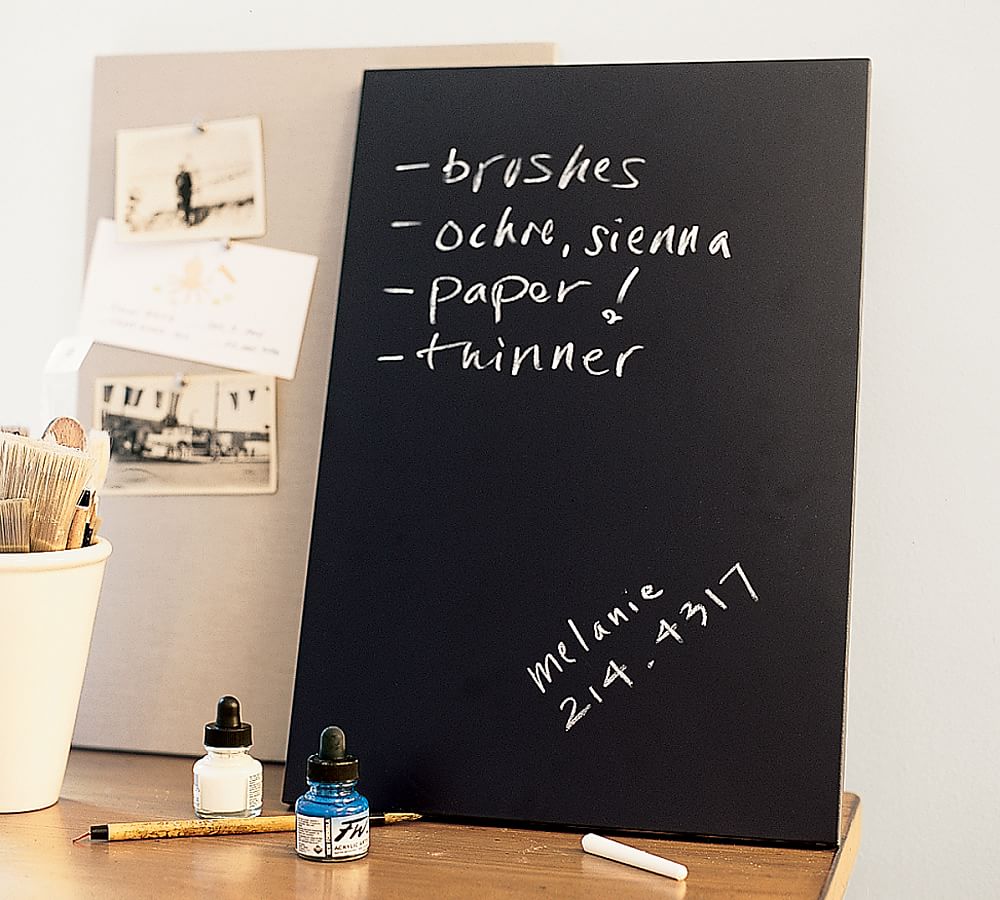 - brushes
- ochre, sienna
- paper!
- thinner
melanie
214.4317
FW.
ACRYLIC